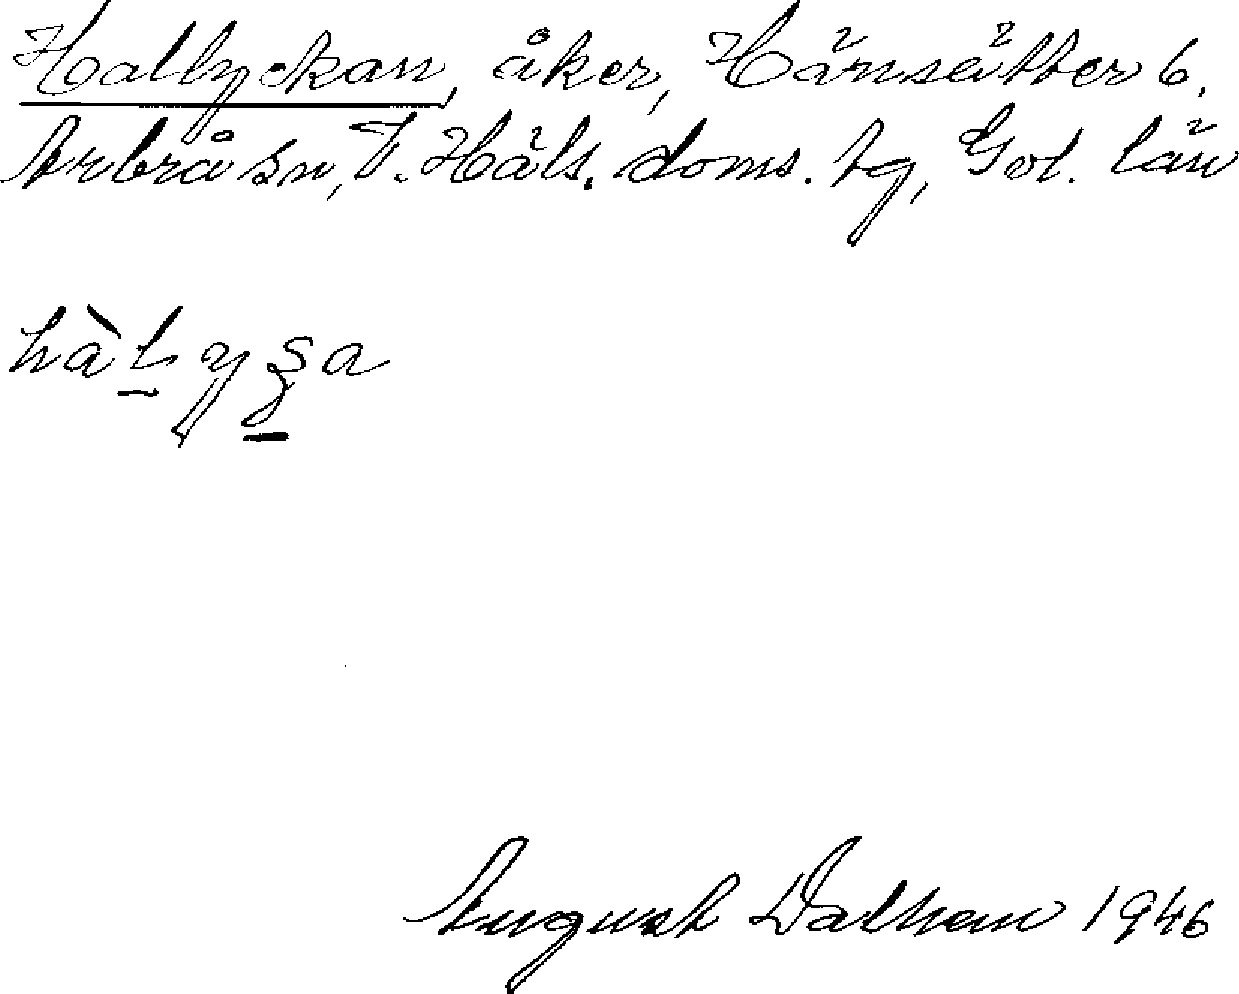 Hallyckan, åker, Hänsätter 6.
Arbrå sn, V. Häls. doms. tg, Gvl. län
hàlyʒa
August Dalhem 1946